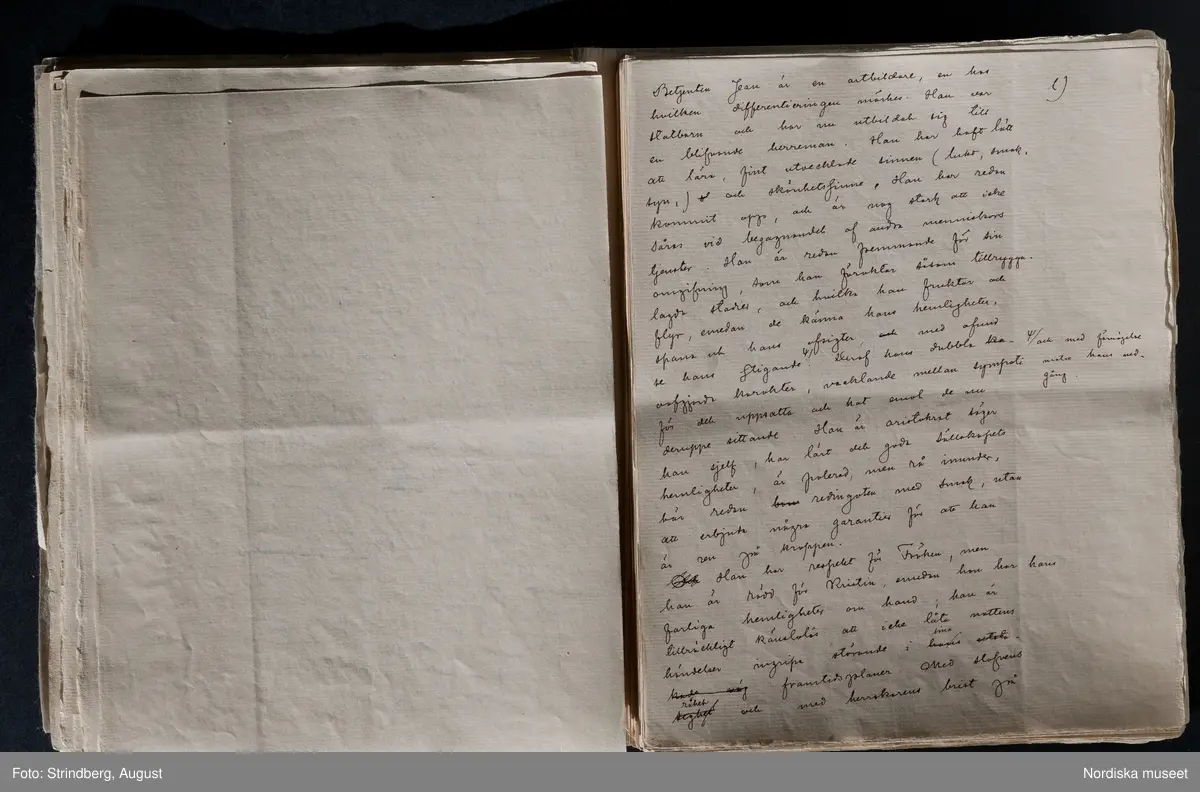 Betjenten Jean är en artbildare, en hos
hvilken differentieringen märkes. Han var
statbarn och har nu utbildat sig till
en blifvande herreman. Han har haft lätt
att lära, fint utvecklade sinnen (lukt, smak,
syn,) och skönhetssinne. Han har redan
kommit opp, och är nog stark att icke
såras vid begagnandet af andra menniskors
tjenster. Han är redan fremmande för sin
omgifning, som han föraktar såsom tillrygga-
lagda stadier, och hvilka han fruktar och
flyr, emedan de känna hans hemligheter,
spana ut hans afsigter, med afund
se hans stigande #/ Deraf hans dubbla ka- #/ och med förnöjelse
oafgjorda karakter, vacklande mellan sympati motse hans ned-
för det uppsatta och hat emot de nu gång
deruppe sittande. Han är aristokrat säger
han sjelf, har lärt det goda sällskapets
hemligheter, är polerad, men rå inunder,
bär redan redingoten med smak, utan
att erbjuda några garantier för att han
är ren på kroppen.
Han har respekt för Fröken, men
han är rädd för Kristin, emedan hon har hans
farliga hemligheter om hand; han är
tillräckligt känslolös att icke låta nattens
händelser ingripa störande i sina
framtidsplaner. Med slafvens
råhet och med herrskarens brist på
1)
Foto: Strindberg, August
Nordiska museet